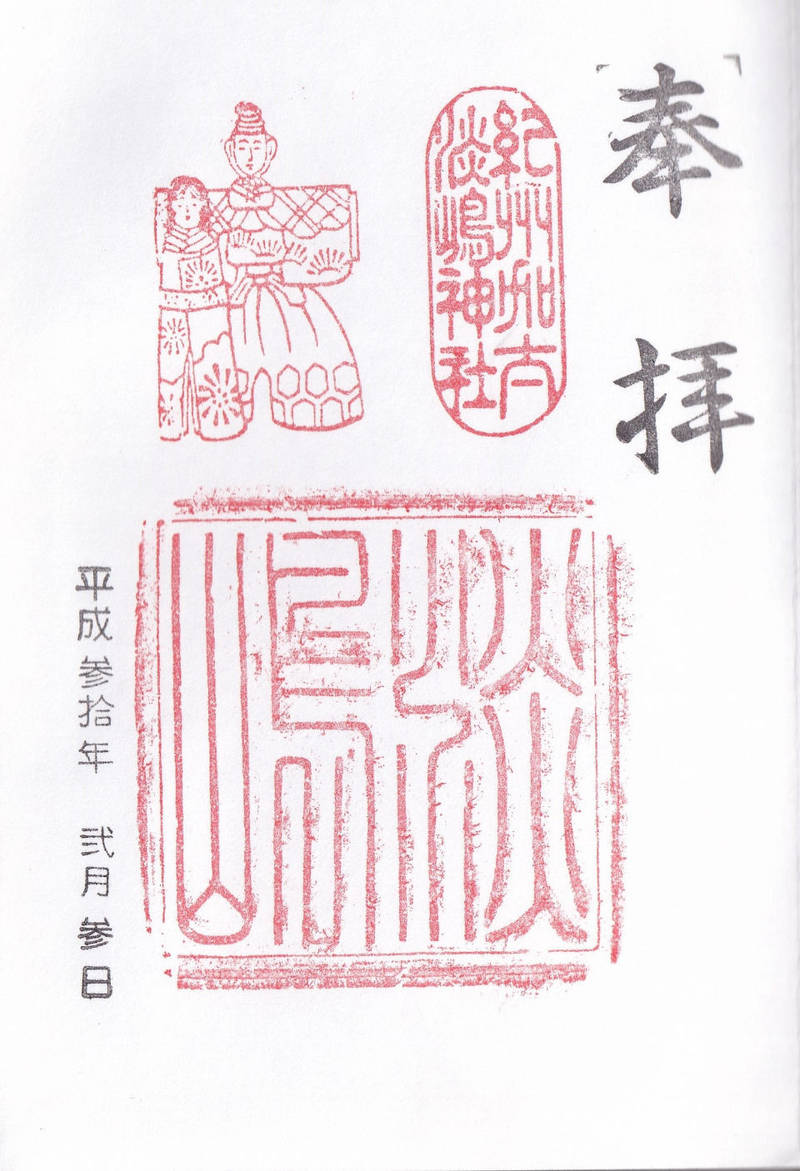 奉拝
紀州加太
淡嶋神社
淡嶋
平成参拾年 弐月参日